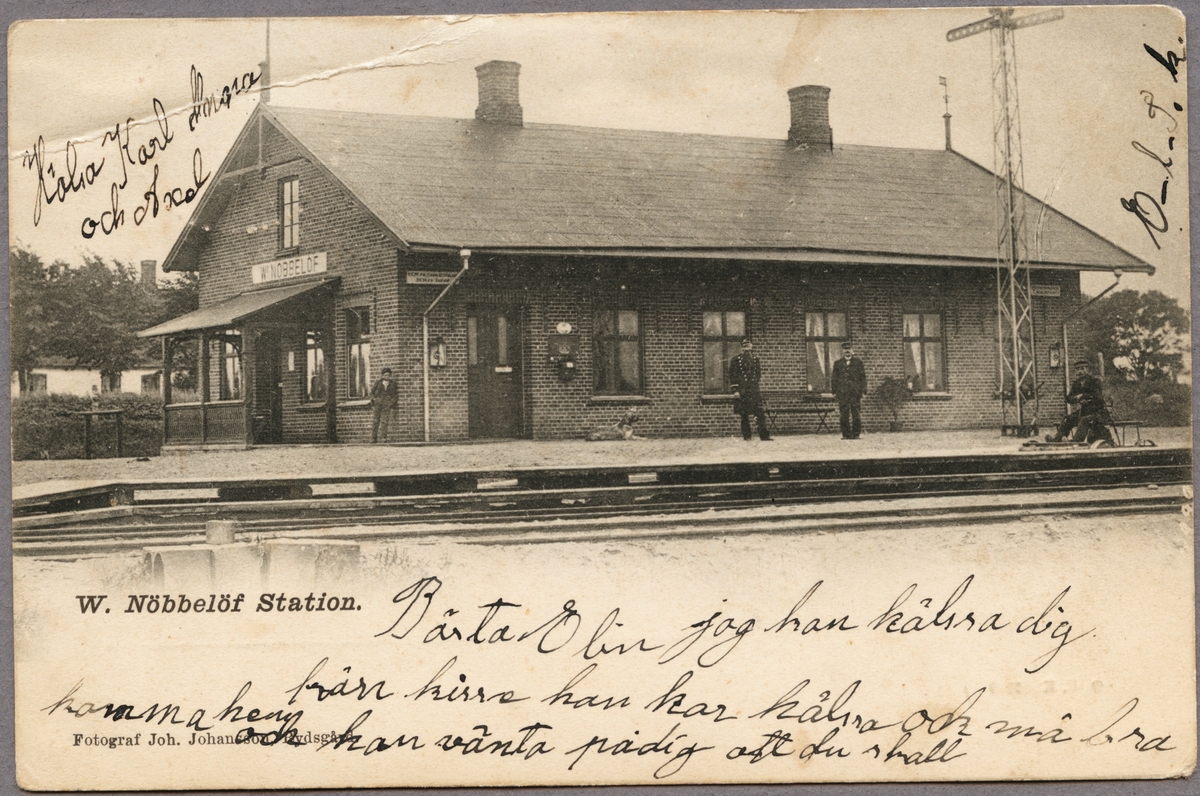 Hälsa Karl Anna
och Axel
E-l-S. k.
W. NÖBBELÖF
W. Nöbbelöf Station.
Bästa Elin jag kan hälsa dig
från kisse han kar hälsa och må bra
och han vänta pådig att du skall
komma hem
Fotograf Joh. Johansson, Rydsgård.